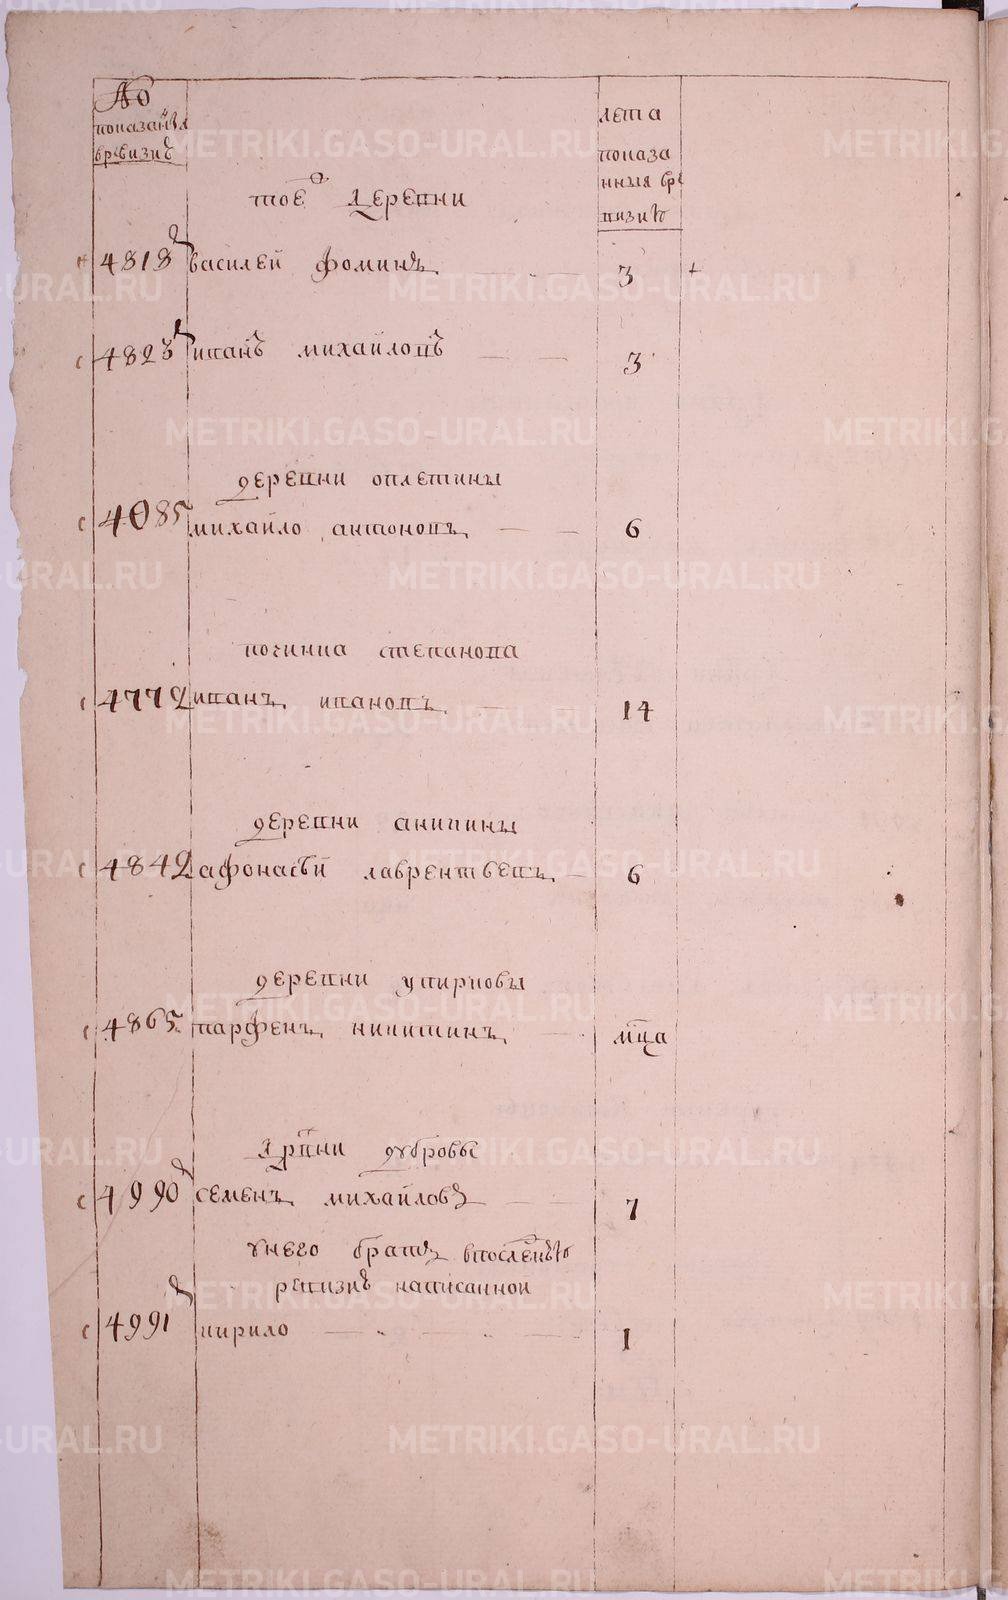 №
показанъ
вревизиѣ
лета
показа
нныя вре
визиѣ
тоѣ деревни
4818 василей фоминъ 3
4823 иванъ михайловъ 3
деревни оплетины
4085 михайло антоновъ 6
починка степанова
4772 иванъ ивановъ 14
деревни аникины
4842 афонасѣй лаврентьевъ 6
деревни
4865 парфенъ никитинъ мца
дрвни дубровы
4990 семенъ михайловъ 7
унего братъ впослѣ
ревизиѣ написанной
4991 кирило 1
METRIKI.GASO-URAL.RU